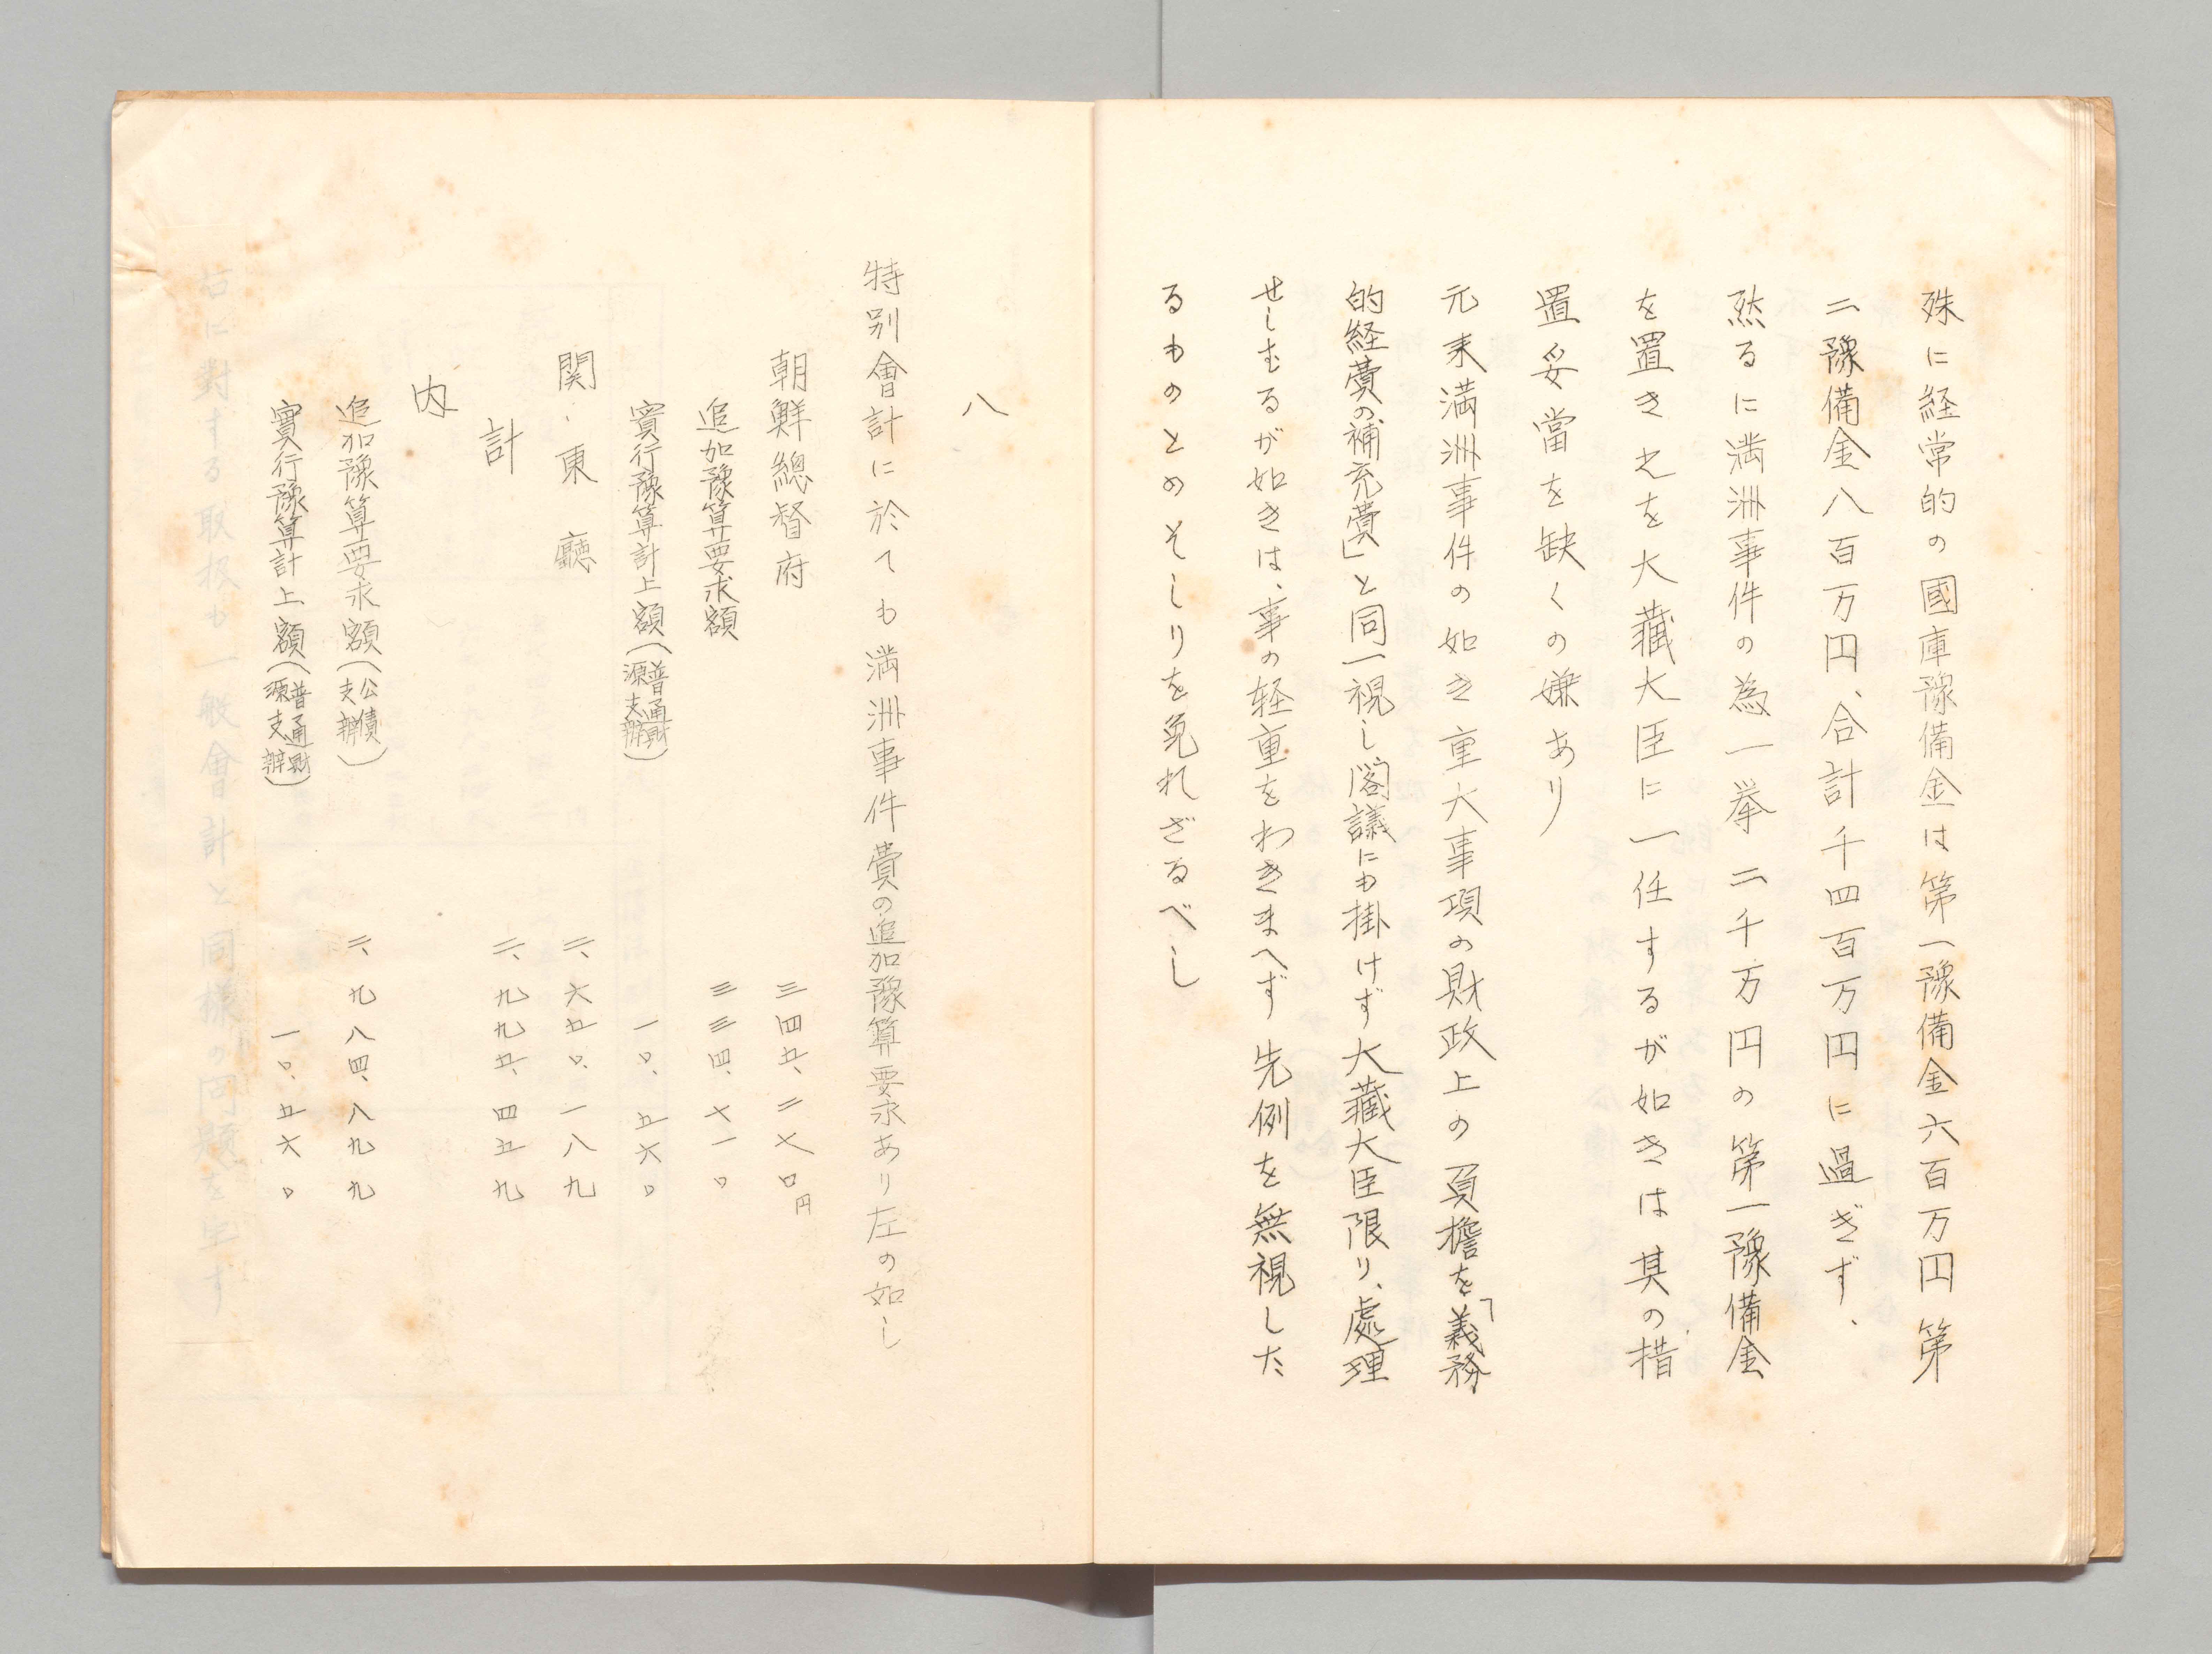 殊に経常的の國庫豫備金は第一豫備金六百万円第
二豫備金八百万円、合計千四百万円に過ぎず、
然るに満洲事件の為一挙二千万円の第一豫備金
を置き之を大藏大臣に一任するが如きは其の措
置妥當を缺くの嫌あり
元来満洲事件の如き重大事項の財政上の負擔を「義務
的経費の補充費」と同一視し閣議にも掛けず大藏大臣限り、處理
せしむるが如きは、事の軽重をわきまへず先例を無視した
るものとのそしりを免れざるべし
八
特別會計に於ても満洲事件費の追加豫算要求あり左の如し
朝鮮總督府 三四五、二七〇円
追加豫算要求額 三三四、七一〇
實行豫算計上額(普通財源支辦) 一〇、五六〇
関東廳 二、六五〇、一八九
計 二、九九五、四五九
内
追加豫算要求額(公債支辦) 二、九八四、八九九
實行豫算計上額(普通財源支辦) 一〇、五六〇
右に對する取扱も一般會計と同様の問題を生ず